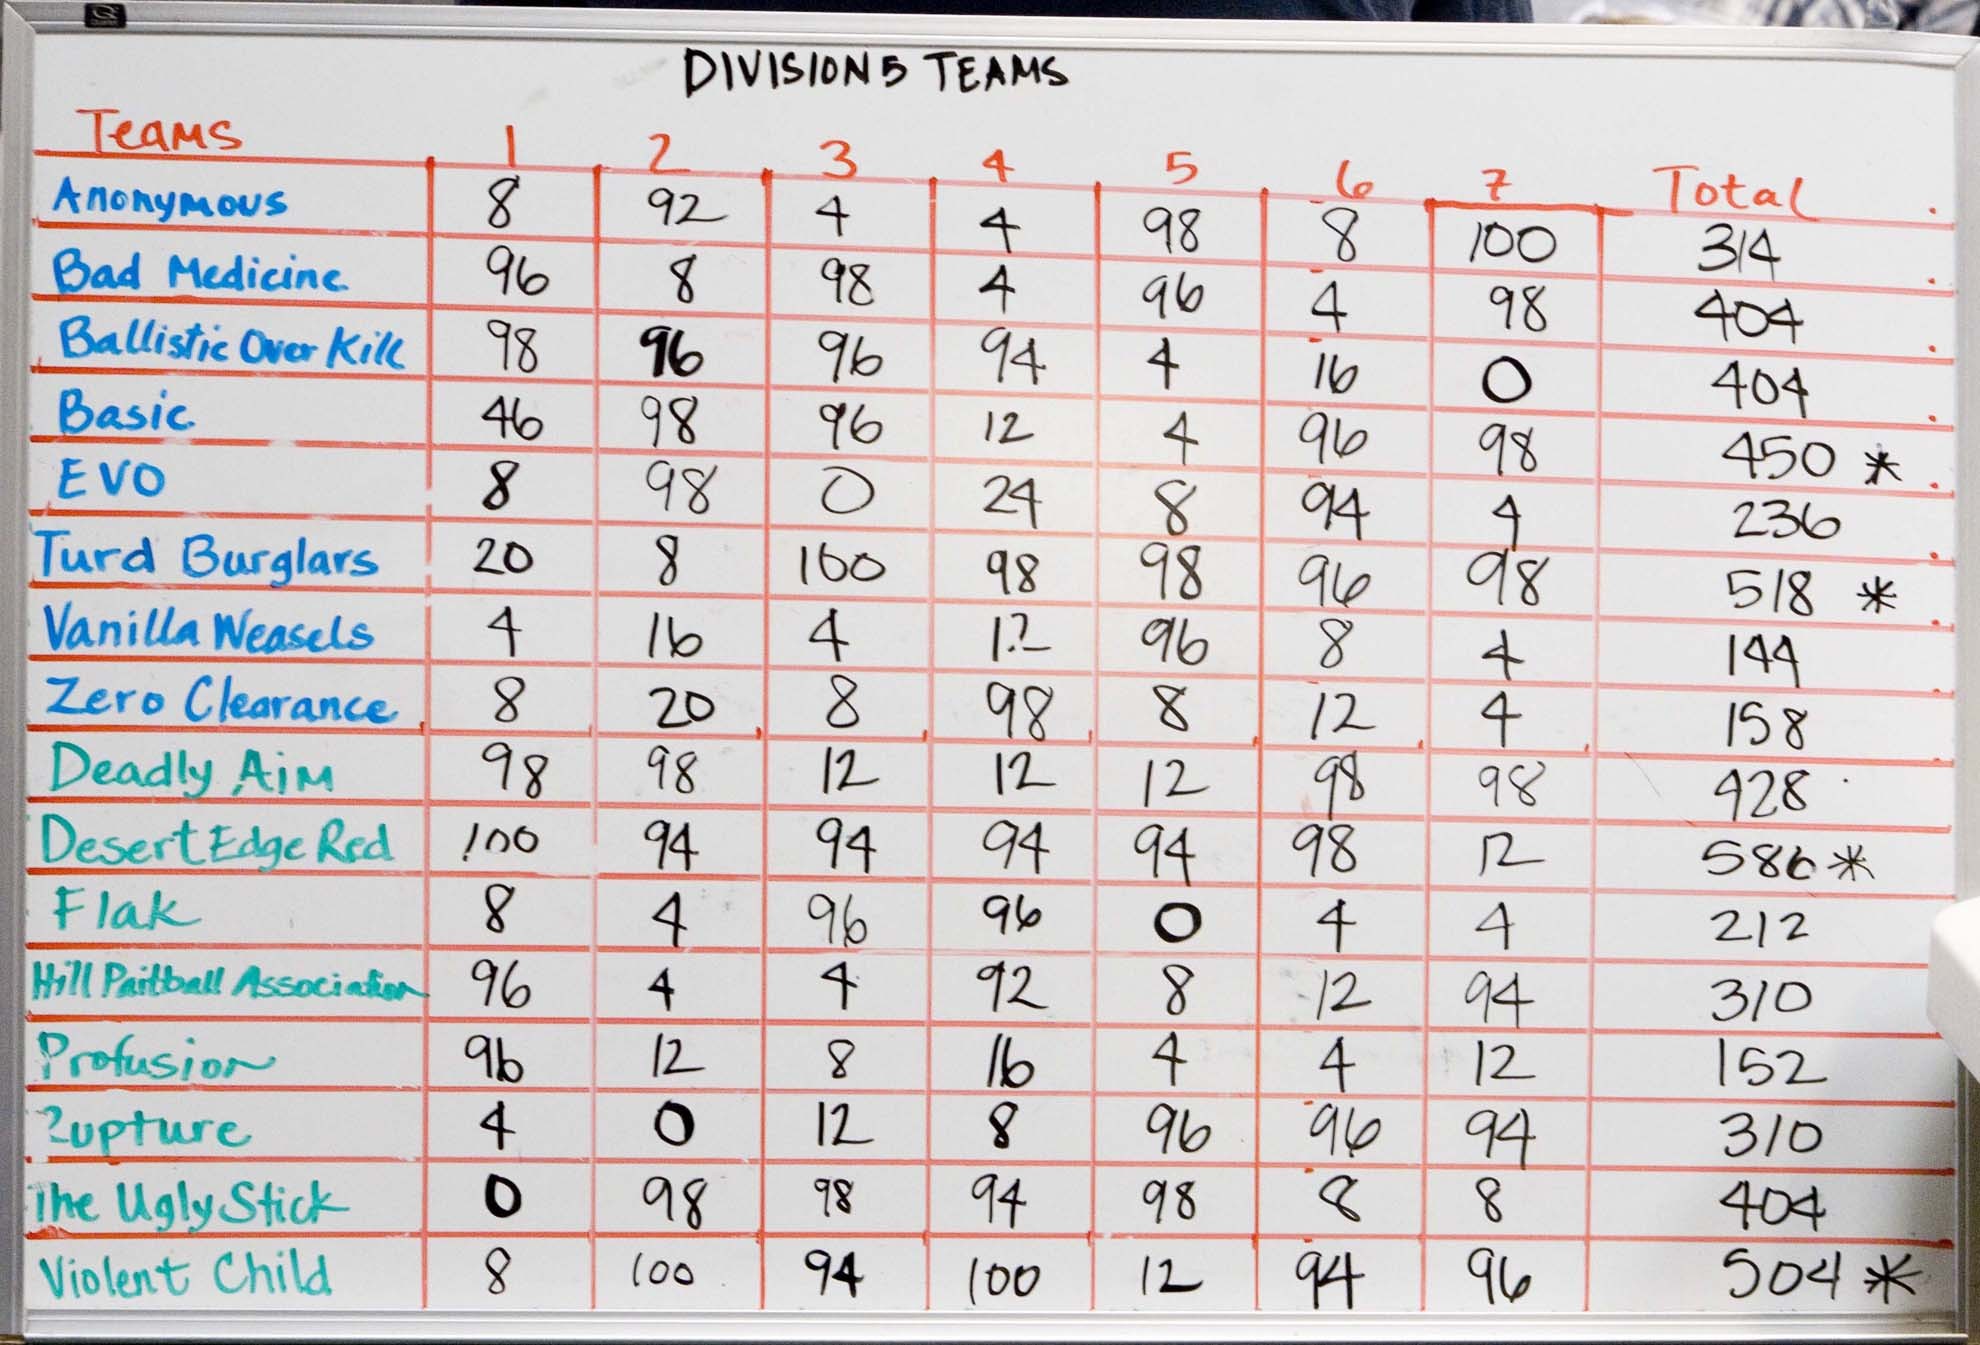 DIVISION 5 TEAMS
Teams 1 2 3 4 5 6 7 Total
Anonymous 8 92 4 4 98 8 100 314
Bad Medicine 96 8 98 4 96 4 98 404
Ballistic Over Kill 98 96 96 94 4 16 0 404
Basic 46 98 96 12 4 96 98 450 *
EVO 8 98 0 24 8 94 4 236
Turd Burglars 20 8 100 98 98 96 98 518 *
Vanilla Weasels 4 16 4 12 96 8 4 144
Zero Clearance 8 20 8 98 8 12 4 158
Deadly Aim 98 98 12 12 12 98 98 428
Desert Edge Red 100 94 94 94 94 98 12 586 *
Flak 8 4 96 96 0 4 4 212
Hill Paitball Association 96 4 4 92 8 12 94 310
Profusion 96 12 8 16 4 4 12 152
Rupture 4 0 12 8 96 96 94 310
The Ugly Stick 0 98 98 94 98 8 8 404
Violent Child 8 100 94 100 12 94 96 504 *